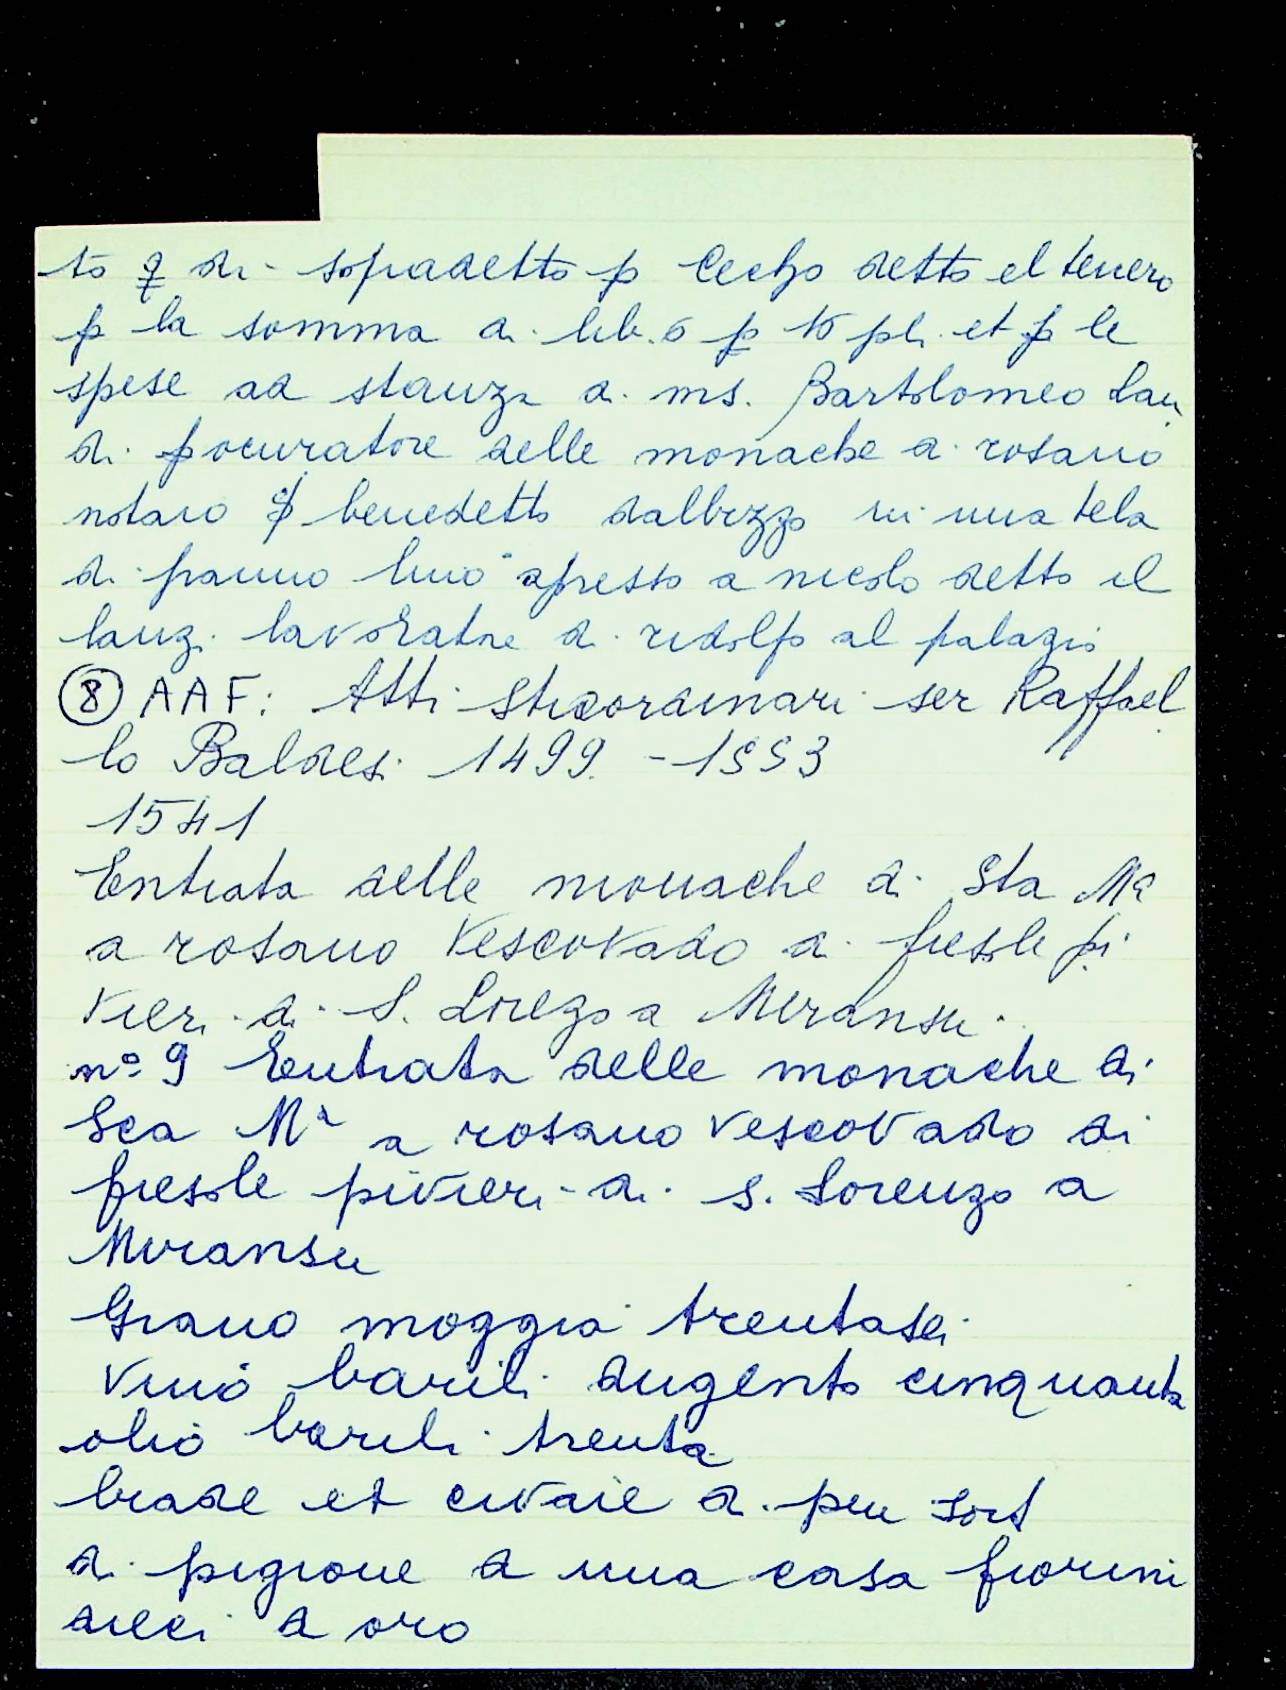 to q di sopradetto p Cecho detto el tenero
p la somma di lib. 6 p to pli. et p le
spese ad stanza di ms. Bartolomeo Lan
di procuratore delle monache di rosano
notaio benedetto dalbizzo in una tela
di panno lino apresso a nicolo detto il
lanzi lavoratore di ridolfo al palagio
8 AAF: Atti Straordinari ser Raffael
lo Baldesi 1499 - 1553
1541
Entrata delle monache di Sta Mª
a rosano Vescovado di fiesole pi
vieri di S. Lorezo a Miransu
nº 9 Entrata delle monache di
Sca Mª a rosano Vescovado di
fiesole pivieri di S. Lorenzo a
Miransu
Grano moggia trentasei
Vino barili dugento cinquanta
olio barili trenta
biade et civaie di piu sort
di pigione d una casa fiorini
dieci d oro